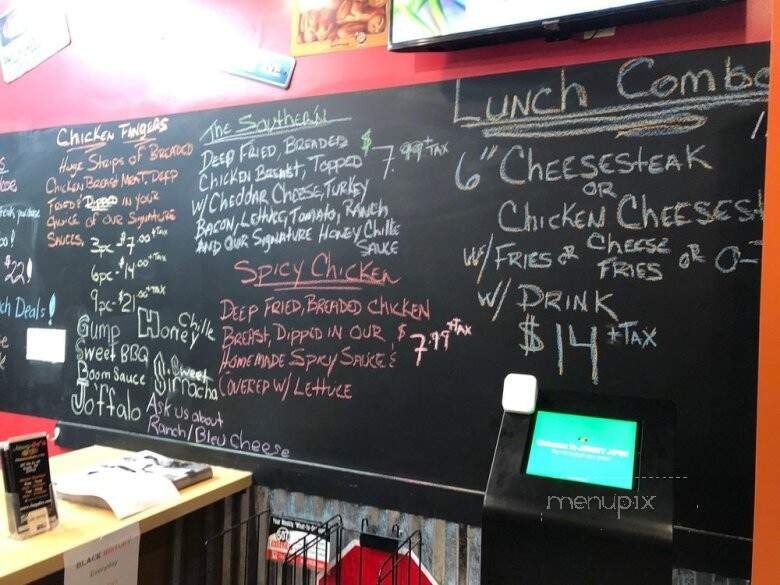 $22!
ch Deals!
CHICKEN FINGERS
Huge Strips of BREADED
CHICKEN BREAST MEAT, DEEP
FRIED & DIPPED IN YOUR
CHOICE OF OUR SIGNATURE
SAUCES.
3pc - $7.00 +TAX
6pc - $14.00 +TAX
9pc - $21.00 +TAX
Gump
Honey Chille
Sweet BBQ
Boom Sauce
Sweet Sirracha
Joffalo
Ask us about
Ranch/Bleu Cheese
The Southern
DEEP FRIED, BREADED $7.99 +TAX
CHICKEN BREAST, TOPPED
W/ CHEDDAR CHEESE, TURKEY
BACON, LETTUCE, TOMATO, RANCH
AND OUR SIGNATURE HONEY Chille
SAUCE
SPICY CHICKEN
DEEP FRIED, BREADED CHICKEN
BREAST, DIPPED IN OUR $7.99 +TAX
HOMEMADE SPICY SAUCE &
COVERED W/ LETTUCE
LUNCH COMBO
6" CHEESESTEAK
OR
CHICKEN CHEESEST
W/ FRIES OR CHEESE FRIES OR O-
W/ DRINK
$14 +TAX
menupix
BLACK HISTORY
Everyday